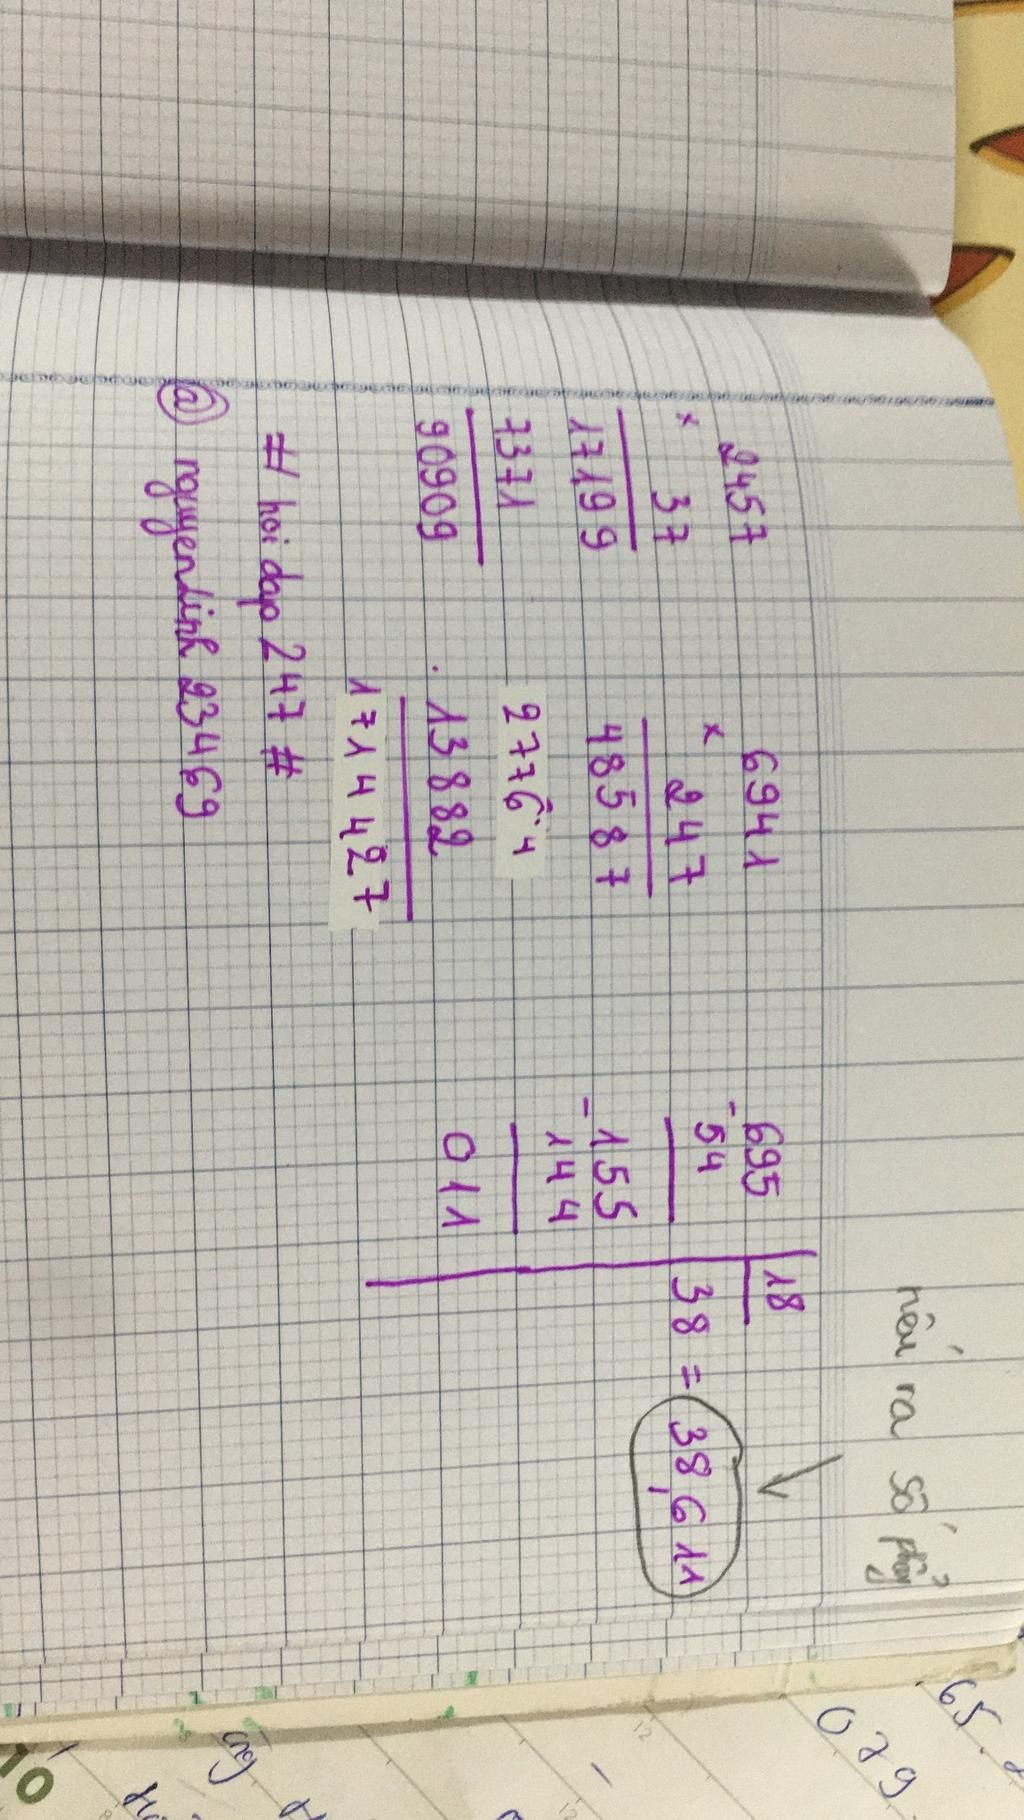 nếu ra số phẩy
2457
× 37
17199
7371
90909
6941
× 247
48587
27764
13882
1714427
695 18
-54 38 = 38,611
-155
144
011
# hoi dap 247 #
@ nguyenlinh 23469
65.
079
10